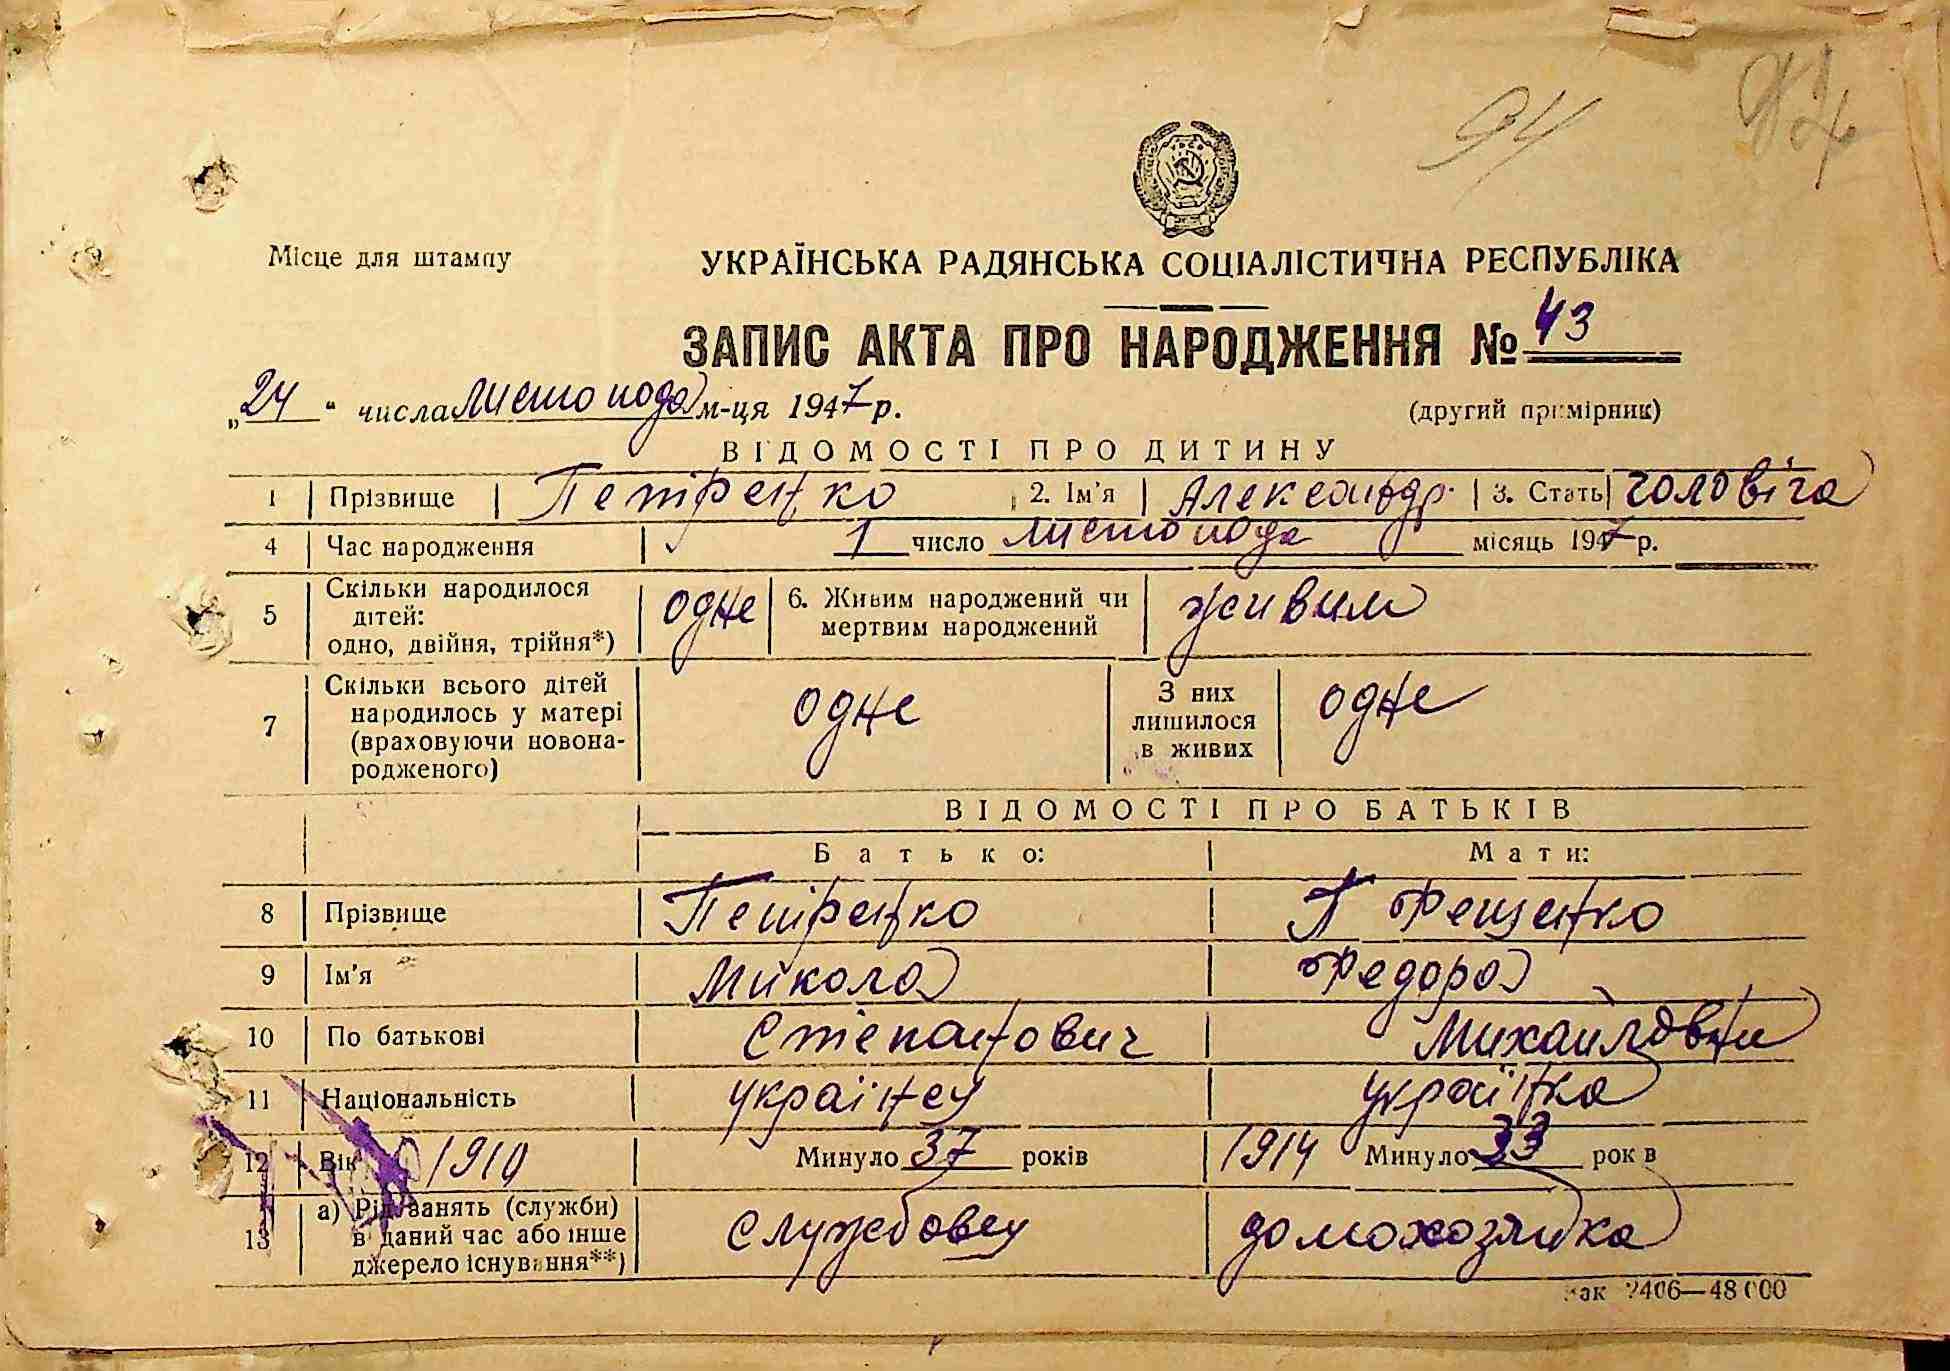 94
Місце для штампу
УКРАЇНСЬКА РАДЯНСЬКА СОЦІАЛІСТИЧНА РЕСПУБЛІКА
ЗАПИС АКТА ПРО НАРОДЖЕННЯ № 43
„24" числа листопада м-ця 1947 р. (другий примірник)
ВІДОМОСТІ ПРО ДИТИНУ
1 Прізвище Петренко 2. Ім'я Александр 3. Стать чоловіча
4 Час народження 1 число листопада місяць 1947 р.
5 Скільки народилося дітей: одно, двійня, трійня*) одне 6. Живим народжений чи мертвим народжений живим
7 Скільки всього дітей народилось у матері (враховуючи новонародженого) одне З них лишилося в живих одне
ВІДОМОСТІ ПРО БАТЬКІВ
Батько: Мати:
8 Прізвище Петренко
9 Ім'я Микола Федора
10 По батькові Степанович Михайловни
11 Національність українец українка
12 Вік 1910 Минуло 37 років 1914 Минуло 33 рок в
13 а) Рід занять (служби) в даний час або інше джерело існування**) службовец домохозяйка
зак 2406—48000